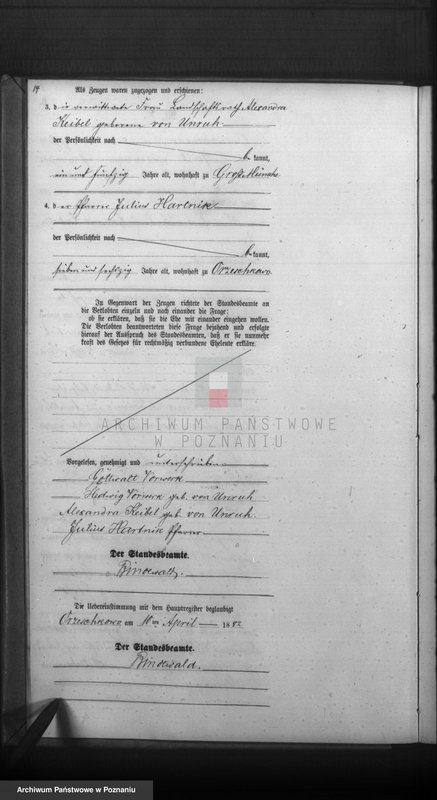 14
Als Zeugen waren zugezogen und erschienen:
3. d ie verwittwete Frau Landschaftsrath Alexandra
Keibel geborene von Unruh
der Persönlichkeit nach
be kannt,
ein und fünfzig Jahre alt, wohnhaft zu Groß Münche
4. d er Pfarrer Julius Hartnik
der Persönlichkeit nach
be kannt,
sieben und sechszig Jahre alt, wohnhaft zu Orzeschkowo
In Gegenwart der Zeugen richtete der Standesbeamte an
die Verlobten einzeln und nach einander die Frage:
ob sie erklären, daß sie die Ehe mit einander eingehen wollen.
Die Verlobten beantworteten diese Frage bejahend und erfolgte
hierauf der Ausspruch des Standesbeamten, daß er sie nunmehr
kraft des Gesetzes für rechtmäßig verbundene Eheleute erkläre.
ARCHIWUM PAŃSTWOWE
W POZNANIU
Vorgelesen, genehmigt und unterschrieben
Gottwalt Vorwerk
Hedwig Vorwerk geb. von Unruh
Alexandra Keibel geb. von Unruh.
Julius Hartnik Pfarrer
Der Standesbeamte.
Bindewald.
Die Uebereinstimmung mit dem Hauptregister beglaubigt
Orzeschkowo am 10ten April 1882
Der Standesbeamte.
Bindewald.
Archiwum Państwowe w Poznaniu